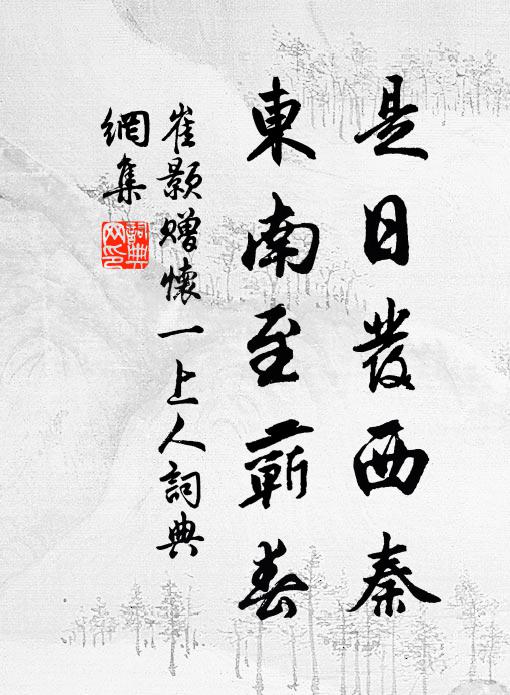 是日發西秦
東南至蘄春
崔顥贈懷一上人詞典
網集
詞典網印